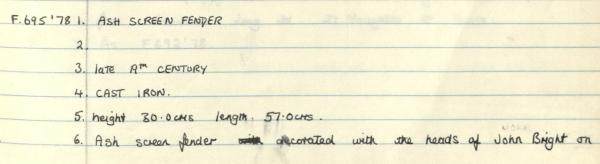 F.695'78 1. ASH SCREEN FENDER
2.
3. late 19th CENTURY
4. CAST IRON.
5. height 30.0cms length. 57.0cms.
6. Ash screen fender decorated with the heads of John Bright on